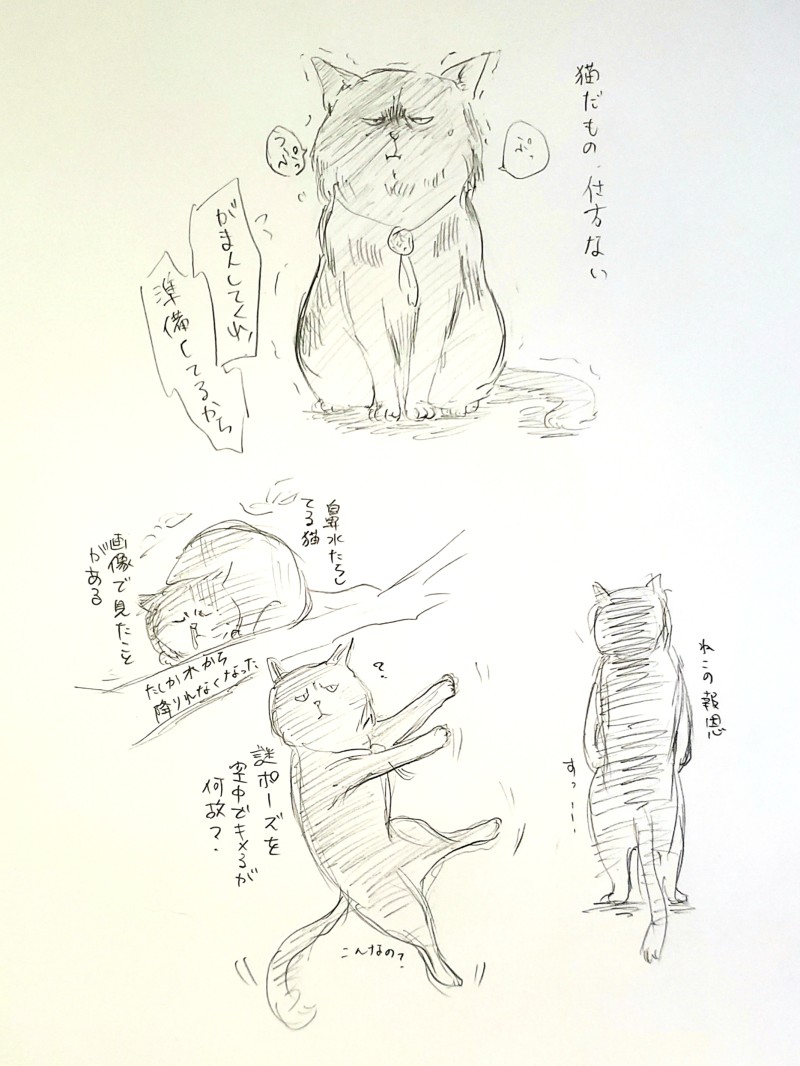 猫だもの、仕方ない
ぷっ
がまんしてくれ!
準備してるから
鼻水たらし
てる猫
画像で見たこと
がある
たしか木から
降りれなくなった
?
謎ポーズを
空中でキメるが
何故?
こんなの?
ねこの報恩
すっ…